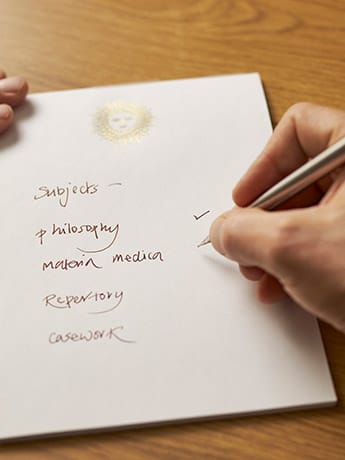 Subjects –
philosophy ✓
materia medica
Repertory
casework